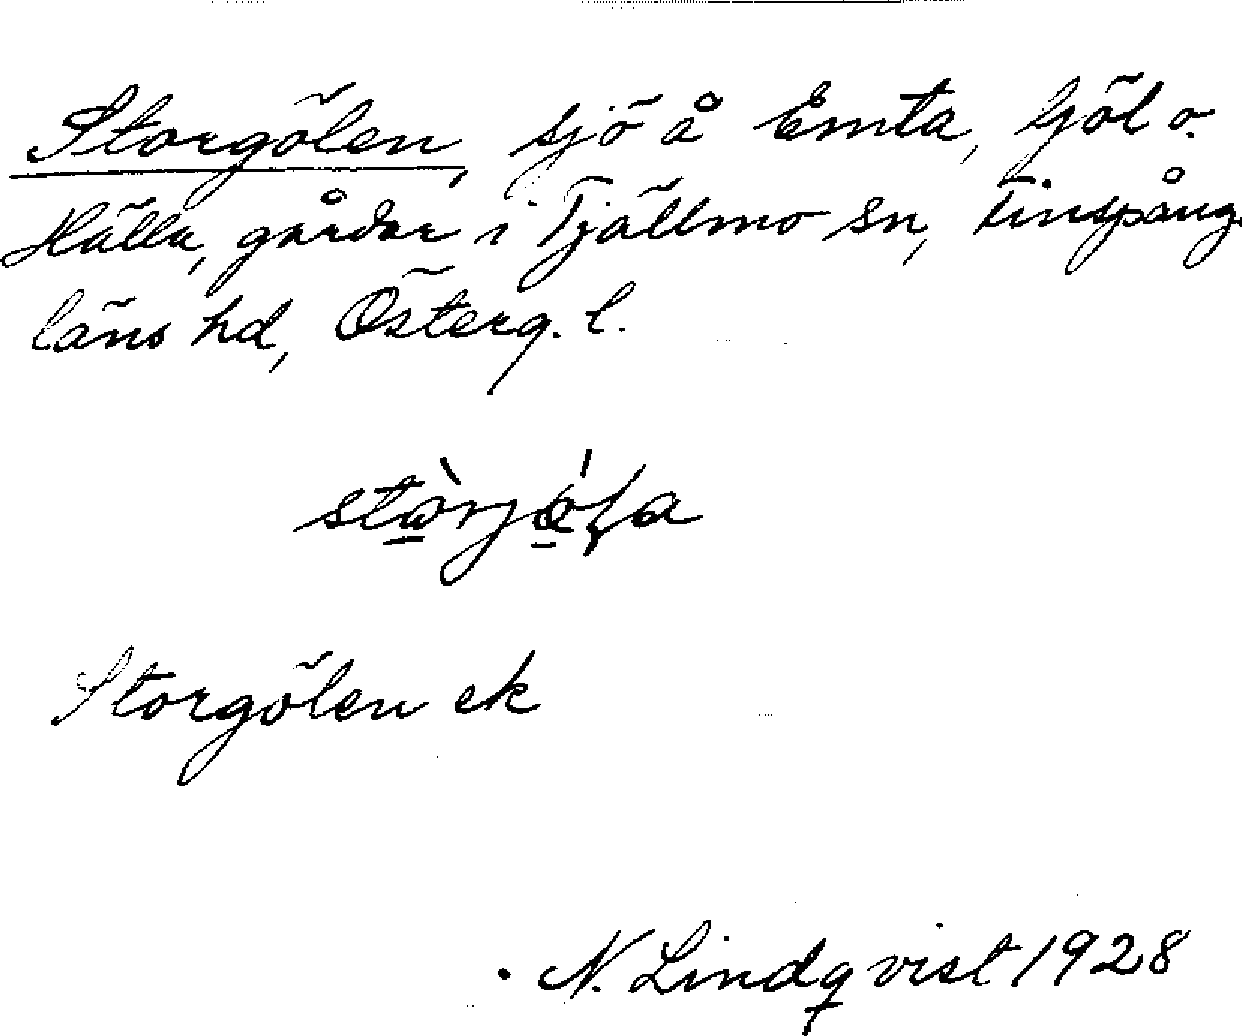 Storgölen, sjö å Emta, Göl o.
Hälla, gårdar i Tjällmo sn, Finspång
läns hd, Österg. l.
Storgölen ek
N. Lindqvist 1928